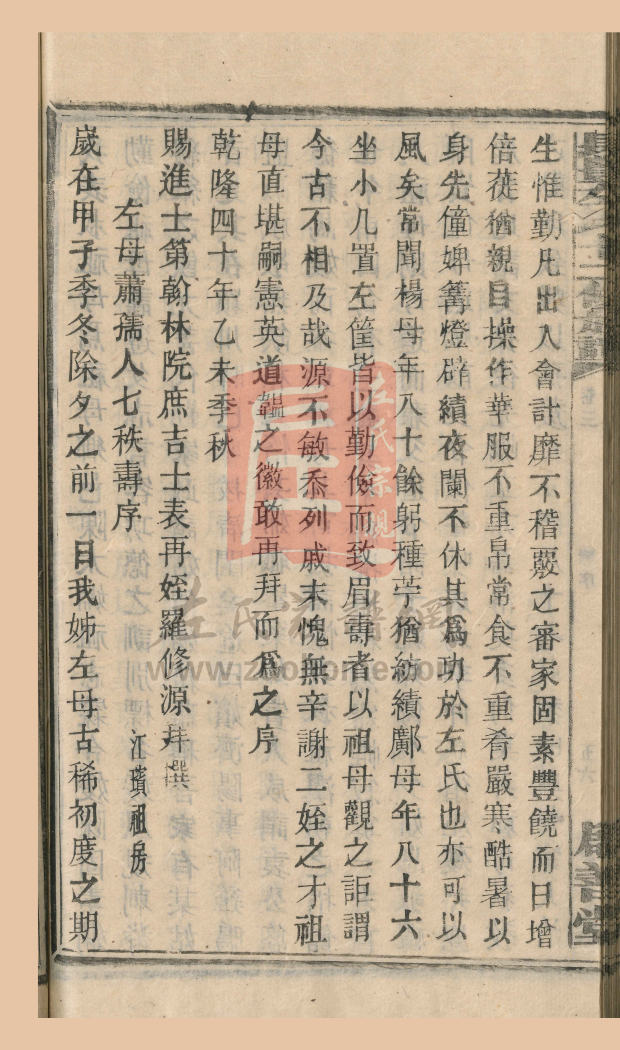 生惟勤凡出入會計靡不稽覈之審家固素豐饒而日增
倍蓰猶親目操作華服不重帛常食不重肴嚴寒酷暑以
身先僮婢篝燈辟績夜闌不休其為功於左氏也亦可以
風矣常聞楊母年八十餘躬種苧猶紡績鄺母年八十六
坐小几置左筐皆以勤儉而致眉壽者以祖母觀之詎謂
今古不相及哉源不敏忝列戚末愧無辛謝二姪之才祖
母直堪嗣憲英道韞之徽敢再拜而為之序
乾隆四十年乙未季秋
賜進士第翰林院庶吉士表再姪羅修源拜撰
左母蕭孺人七秩壽序
江璸祖房
嵗在甲子季冬除夕之前一日我姊左母古稀初度之期
左氏宗親
左氏族譜網
www.zuojiome.com